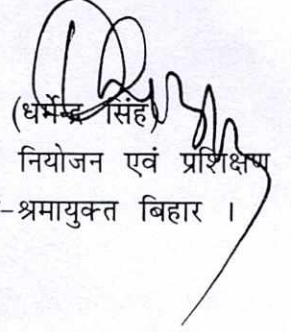 (धर्मेन्द्र सिंह)
नियोजन एवं प्रशिक्षण
-श्रमायुक्त बिहार ।